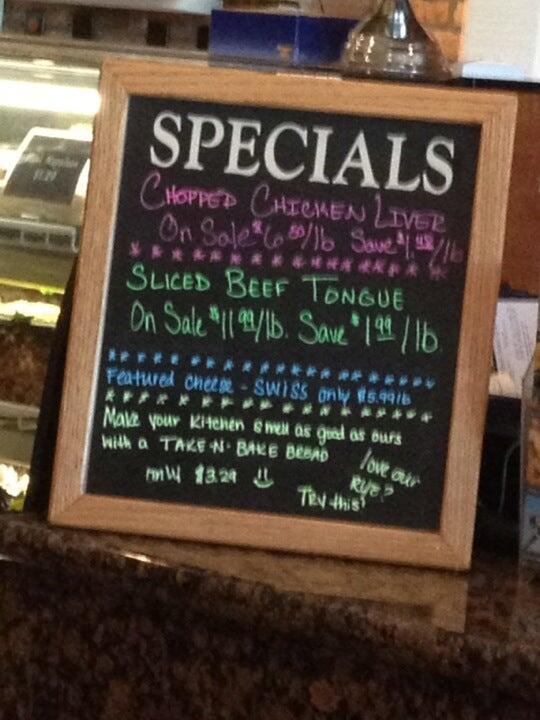 SPECIALS
CHOPPED CHICKEN LIVER
On Sale $6.50/lb Save $1.48/lb
SLICED BEEF TONGUE
On Sale $11.99/lb. Save $1.99/lb.
Featured cheese - SWISS only $5.99lb
Make your kitchen smell as good as ours
with a TAKE-N-BAKE BREAD
$3.29
love our
RYE?
TRY this!